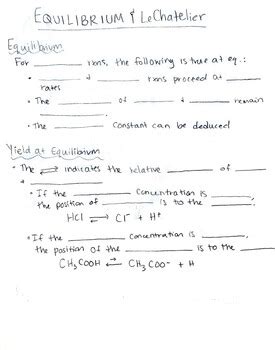 EQUILIBRIUM & LeChatelier
Equilibrium
For ________ rxns, the following is true at eq.:
• ________ & ________ rxns proceed at ________
rates
• The ________ of ________ & ________ remain
________
• The ________ Constant can be deduced
Yield at Equilibrium
• The ⇌ indicates the relative ________ of ________
& ________
• If the ________ Concentration is ________
the position of ________ is to the ________:
HCl ⇌ Cl⁻ + H⁺
• If the ________ concentration is ________,
the position of the ________ is to the ________
CH₃COOH ⇌ CH₃COO⁻ + H